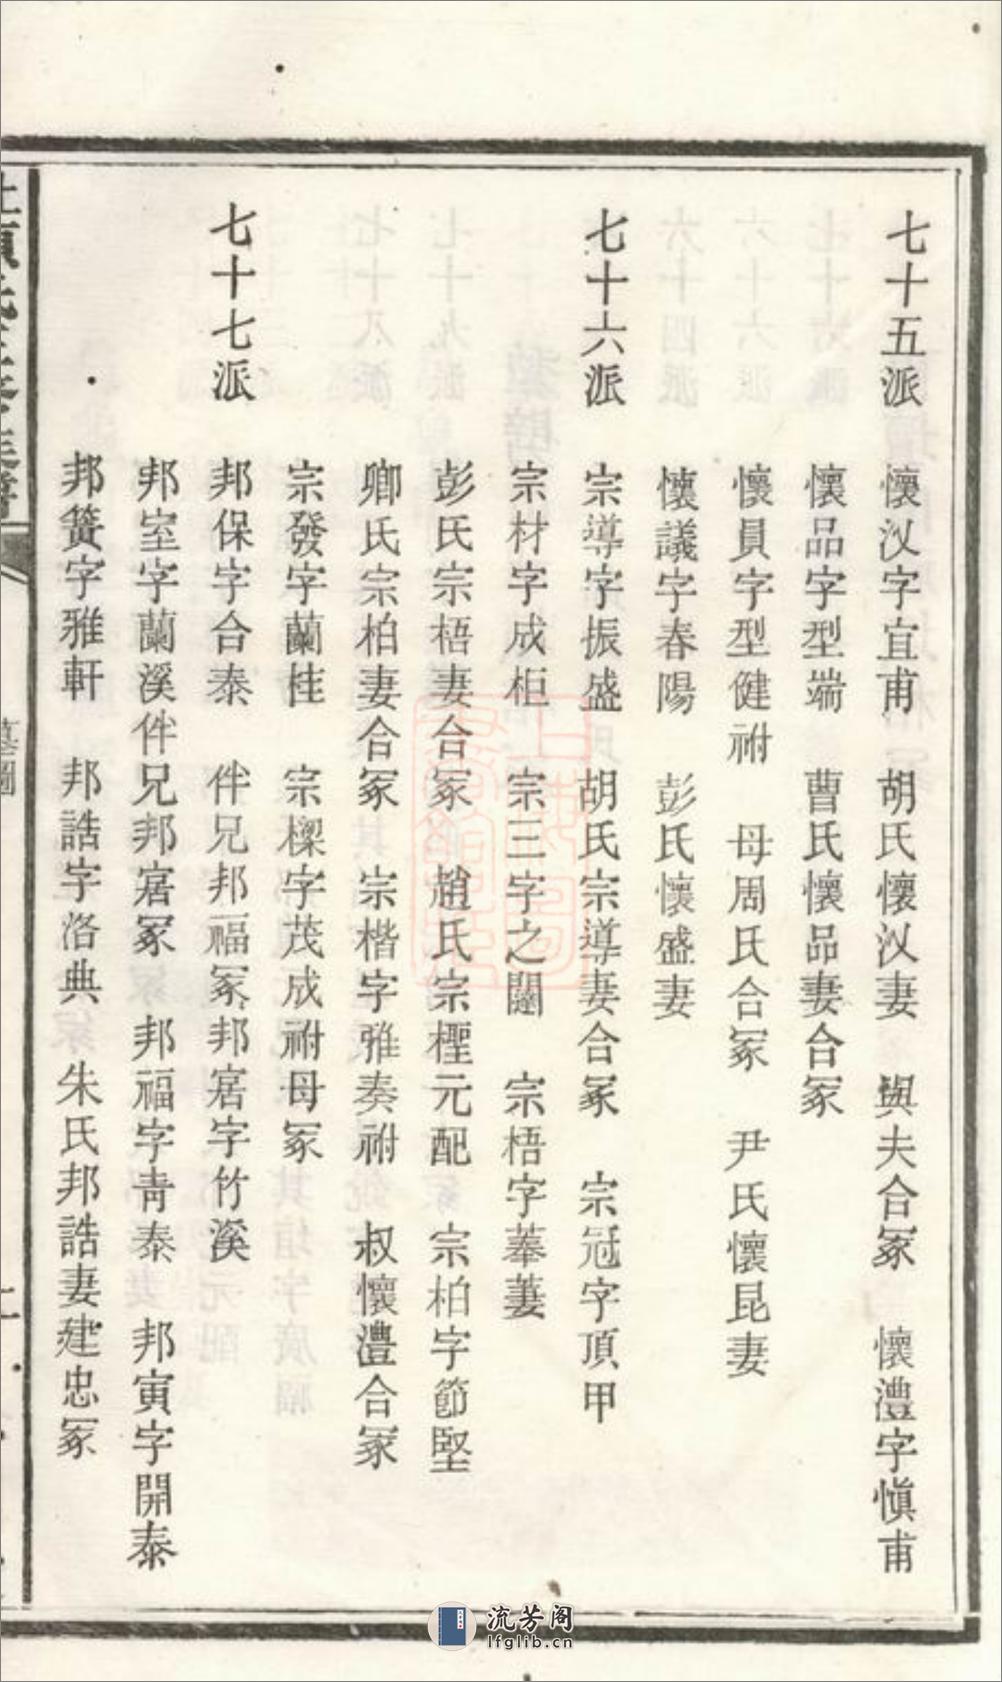 七十五派 懷汉字宜甫 胡氏懷汉妻 與夫合冢 懷澧字愼甫
懷品字型端 曹氏懷品妻合冢
懷員字型健祔 母周氏合冢 尹氏懷昆妻
懷議字春陽 彭氏懷盛妻
七十六派 宗導字振盛 胡氏宗導妻合冢 宗冠字頂甲
宗材字成柜 宗三字之闥 宗梧字菶萋
彭氏宗梧妻合冢 趙氏宗檉元配 宗柏字節堅
卿氏宗柏妻合冢 宗楷字雅奏祔 叔懷澧合冢
宗發字蘭桂 宗樑字茂成祔母冢
七十七派 邦保字合泰 伴兄邦福冢 邦宭字竹溪
邦室字蘭溪伴兄邦宭冢 邦福字靑泰 邦寅字開泰
邦簧字雅軒 邦誥字洛典 朱氏邦誥妻建忠冢
墓圖
流芳阁
lfglib.cn